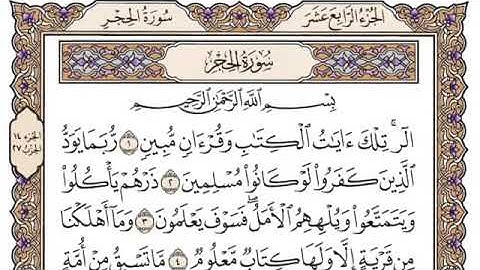 الجزء الرابع عشر
سورة الحجر
سُورَةُ الحِجْرِ
بِسْمِ اللَّهِ الرَّحْمَٰنِ الرَّحِيمِ
الٓرۚ تِلْكَ ءَايَٰتُ ٱلْكِتَٰبِ وَقُرْءَانٖ مُّبِينٖ ١ رُّبَمَا يَوَدُّ
ٱلَّذِينَ كَفَرُواْ لَوْ كَانُواْ مُسْلِمِينَ ٢ ذَرْهُمْ يَأْكُلُواْ
وَيَتَمَتَّعُواْ وَيُلْهِهِمُ ٱلْأَمَلُۖ فَسَوْفَ يَعْلَمُونَ ٣ وَمَآ أَهْلَكْنَا
مِن قَرْيَةٍ إِلَّا وَلَهَا كِتَابٞ مَّعْلُومٞ ٤ مَّا تَسْبِقُ مِنْ أُمَّةٍ
الجزء ١٤
الحزب ٢٧